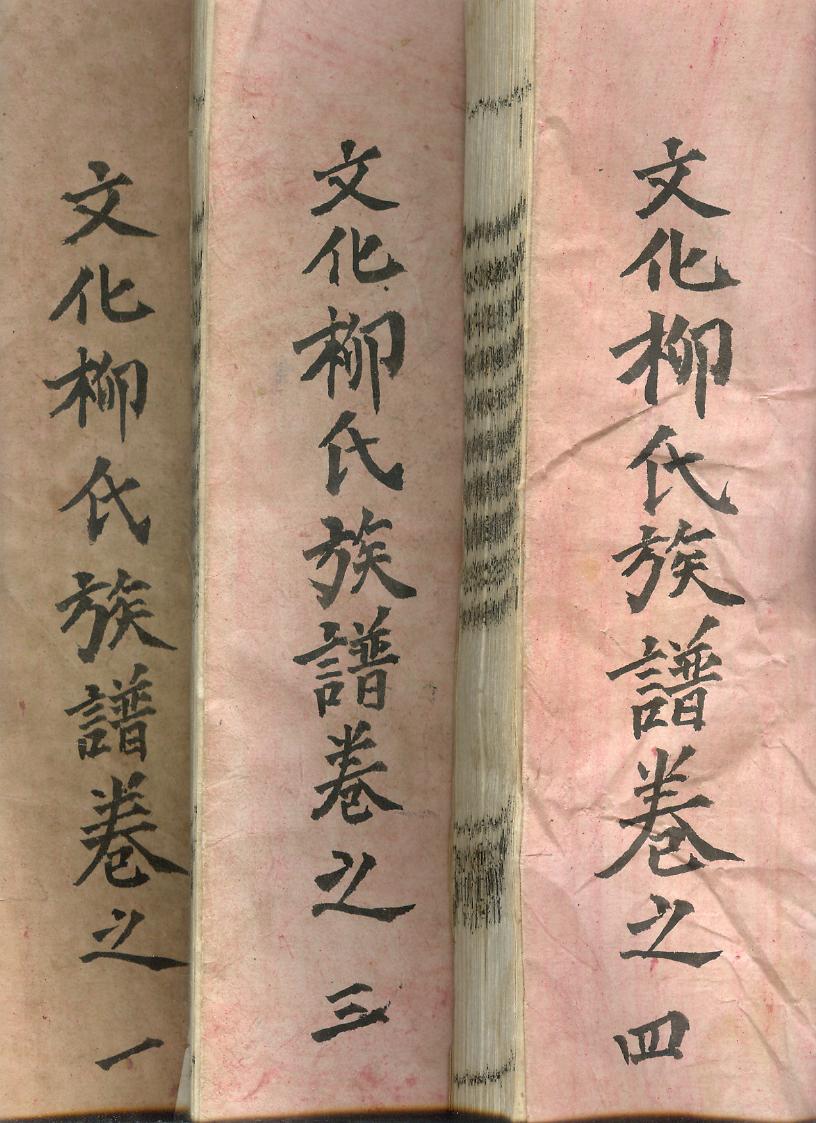 文化柳氏族譜卷之一
文化柳氏族譜卷之三
文化柳氏族譜卷之四